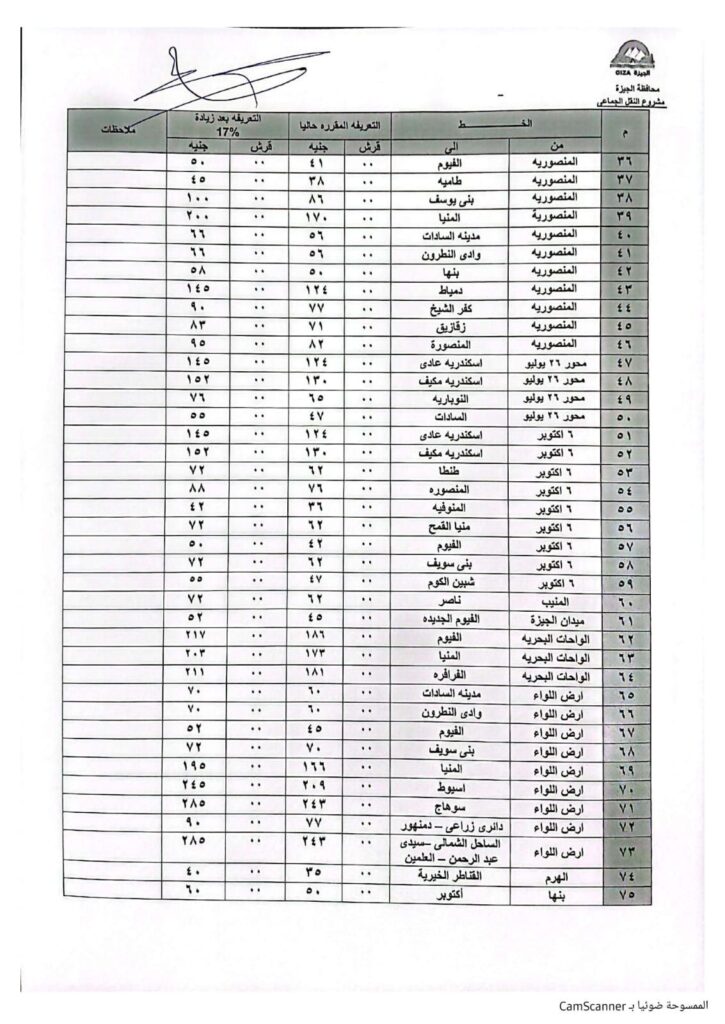 الجيزة GIZA
محافظة الجيزة
مشروع النقل الجماعى
م الخـــــط التعريفه المقرره حاليا التعريفه بعد زيادة 17% ملاحظات
من الى قرش جنيه قرش جنيه
٣٦ المنصوريه الفيوم ٠٠ ٤١ ٠٠ ٥٠
٣٧ المنصوريه طاميه ٠٠ ٣٨ ٠٠ ٤٥
٣٨ المنصوريه بنى يوسف ٠٠ ٨٦ ٠٠ ١٠٠
٣٩ المنصورية المنيا ٠٠ ١٧٠ ٠٠ ٢٠٠
٤٠ المنصوريه مدينه السادات ٠٠ ٥٦ ٠٠ ٦٦
٤١ المنصوريه وادى النطرون ٠٠ ٥٦ ٠٠ ٦٦
٤٢ المنصوريه بنها ٠٠ ٥٠ ٠٠ ٥٨
٤٣ المنصوريه دمياط ٠٠ ١٢٤ ٠٠ ١٤٥
٤٤ المنصوريه كفر الشيخ ٠٠ ٧٧ ٠٠ ٩٠
٤٥ المنصوريه زقازيق ٠٠ ٧١ ٠٠ ٨٣
٤٦ المنصوريه المنصورة ٠٠ ٨٢ ٠٠ ٩٥
٤٧ محور ٢٦ يوليو اسكندريه عادى ٠٠ ١٢٤ ٠٠ ١٤٥
٤٨ محور ٢٦ يوليو اسكندريه مكيف ٠٠ ١٣٠ ٠٠ ١٥٢
٤٩ محور ٢٦ يوليو النوباريه ٠٠ ٦٥ ٠٠ ٧٦
٥٠ محور ٢٦ يوليو السادات ٠٠ ٤٧ ٠٠ ٥٥
٥١ ٦ اكتوبر اسكندريه عادى ٠٠ ١٢٤ ٠٠ ١٤٥
٥٢ ٦ اكتوبر اسكندريه مكيف ٠٠ ١٣٠ ٠٠ ١٥٢
٥٣ ٦ اكتوبر طنطا ٠٠ ٦٢ ٠٠ ٧٢
٥٤ ٦ اكتوبر المنصوره ٠٠ ٧٦ ٠٠ ٨٨
٥٥ ٦ اكتوبر المنوفيه ٠٠ ٣٦ ٠٠ ٤٢
٥٦ ٦ اكتوبر منيا القمح ٠٠ ٦٢ ٠٠ ٧٢
٥٧ ٦ اكتوبر الفيوم ٠٠ ٤٢ ٠٠ ٥٠
٥٨ ٦ اكتوبر بنى سويف ٠٠ ٦٢ ٠٠ ٧٢
٥٩ ٦ اكتوبر شبين الكوم ٠٠ ٤٧ ٠٠ ٥٥
٦٠ المنيب ناصر ٠٠ ٦٢ ٠٠ ٧٢
٦١ ميدان الجيزة الفيوم الجديده ٠٠ ٤٥ ٠٠ ٥٢
٦٢ الواحات البحريه الفيوم ٠٠ ١٨٦ ٠٠ ٢١٧
٦٣ الواحات البحريه المنيا ٠٠ ١٧٣ ٠٠ ٢٠٣
٦٤ الواحات البحريه الفرافره ٠٠ ١٨١ ٠٠ ٢١١
٦٥ ارض اللواء مدينه السادات ٠٠ ٦٠ ٠٠ ٧٠
٦٦ ارض اللواء وادى النطرون ٠٠ ٦٠ ٠٠ ٧٠
٦٧ ارض اللواء الفيوم ٠٠ ٤٥ ٠٠ ٥٢
٦٨ ارض اللواء بنى سويف ٠٠ ٧٠ ٠٠ ٧٢
٦٩ ارض اللواء المنيا ٠٠ ١٦٦ ٠٠ ١٩٥
٧٠ ارض اللواء اسيوط ٠٠ ٢٠٩ ٠٠ ٢٤٥
٧١ ارض اللواء سوهاج ٠٠ ٢٤٣ ٠٠ ٢٨٥
٧٢ ارض اللواء دائرى زراعى – دمنهور ٠٠ ٧٧ ٠٠ ٩٠
٧٣ ارض اللواء الساحل الشمالى –سيدى ٠٠ ٢٤٣ ٠٠ ٢٨٥
عبد الرحمن – العلمين
٧٤ الهرم القناطر الخيرية ٠٠ ٣٥ ٠٠ ٤٠
٧٥ بنها أكتوبر ٠٠ ٥٠ ٠٠ ٦٠
الممسوحة ضوئيا بـ CamScanner